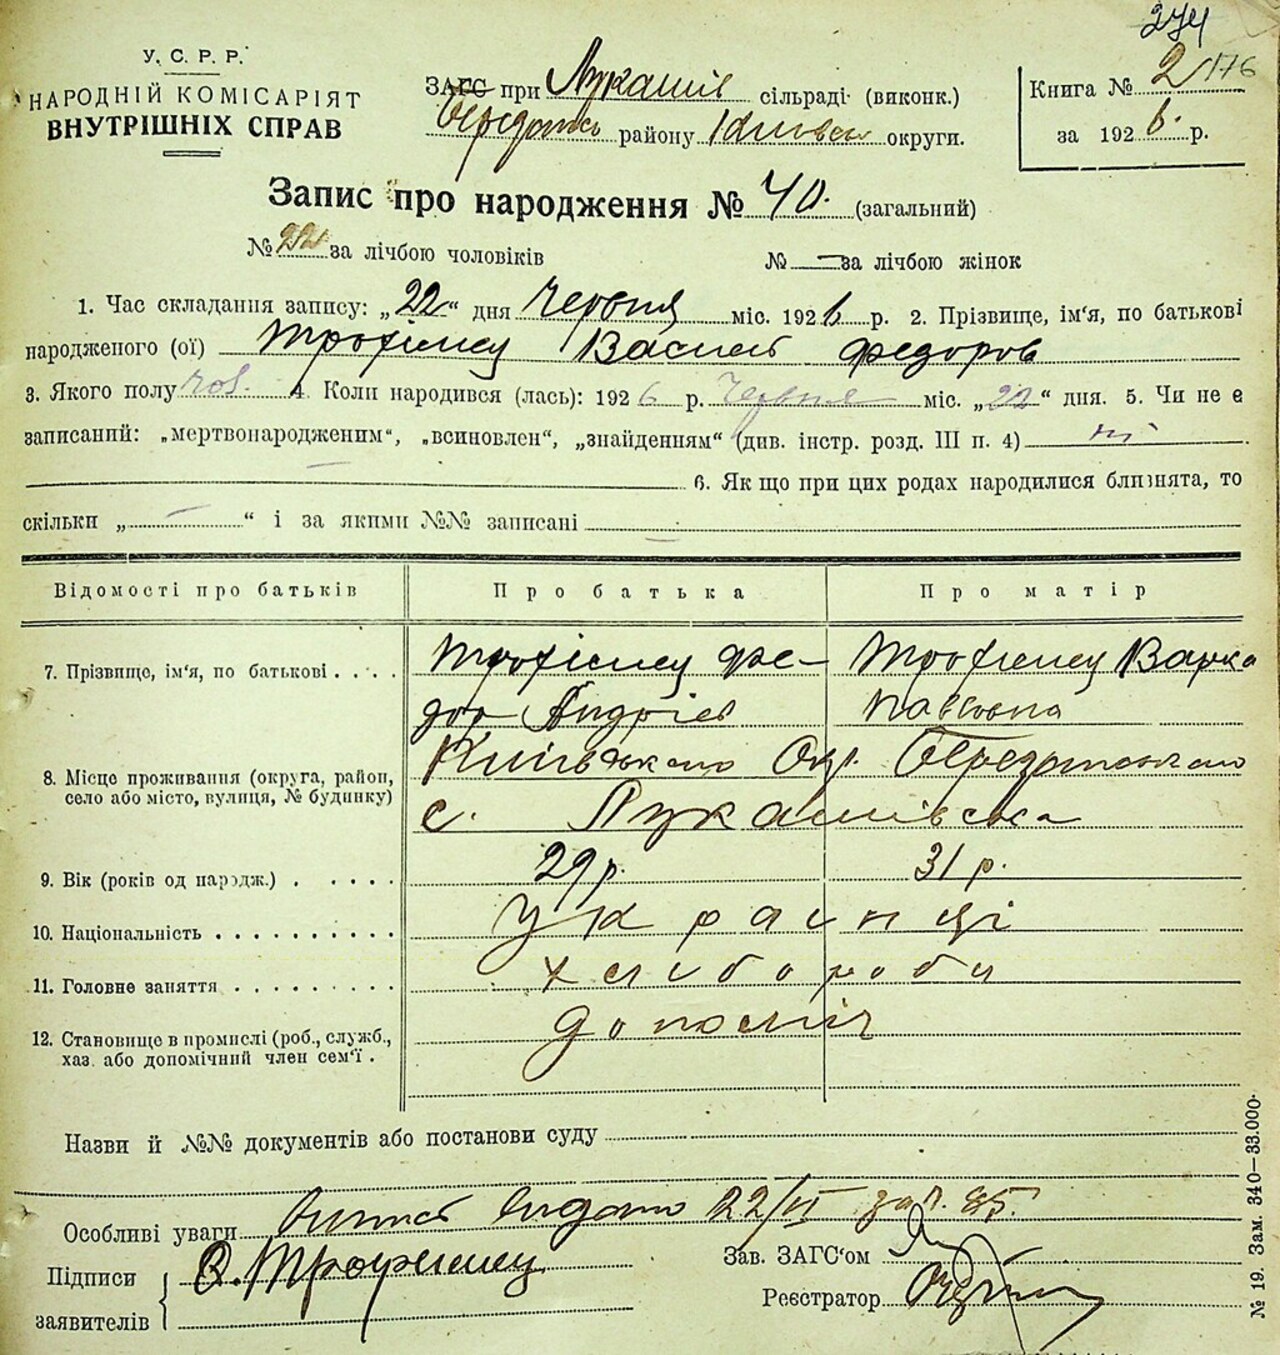 274
У. С. Р. Р.
НАРОДНІЙ КОМІСАРІЯТ
ВНУТРІШНІХ СПРАВ
ЗАГС при Лукашів сільраді (виконк.)
району округи.
Книга № 2 176
за 1926. р.
Запис про народження № 40. (загальний)
№ 22 за лічбою чоловіків № — за лічбою жінок
1. Час складання запису: „22“ дня Червня міс. 1926 р. 2. Прізвище, ім‘я, по батькові
народженого (ої) Трофімец Василь Федоров
3. Якого полу чол. 4. Коли народився (лась): 1926 р. Червня міс. „22“ дня. 5. Чи не є
записаний: „мертвонародженим“, „всиновлен“, „знайденням“ (див. інстр. розд. III п. 4) ні
— 6. Як що при цих родах народилися близнята, то
скільки „—“ і за якими №№ записані —
Відомості про батьків Про батька Про матір
7. Прізвище, ім‘я, по батькові . . . . Трофімец Фе- Трофимец Варка
дор Андріев Павловна
8. Місце проживання (округа, район, Київського Окр.
село або місто, вулиця, № будинку) с. Лукашівська
9. Вік (років од народж.) . . . . . 29 р. 31 р.
10. Національність . . . . . . . . . . Украинці
11. Головне заняття . . . . . . . . . хлибороби
12. Становище в промислі (роб., служб.,
хаз. або допомічний член сем‘ї . допоміч
Назви й №№ документів або постанови суду
Особливі уваги Випис видано 22/VI за №. 85.
Підписи Трофимец Зав. ЗАГС‘ом
заявителів Реєстратор
№ 19. Зам. 340—33.000.